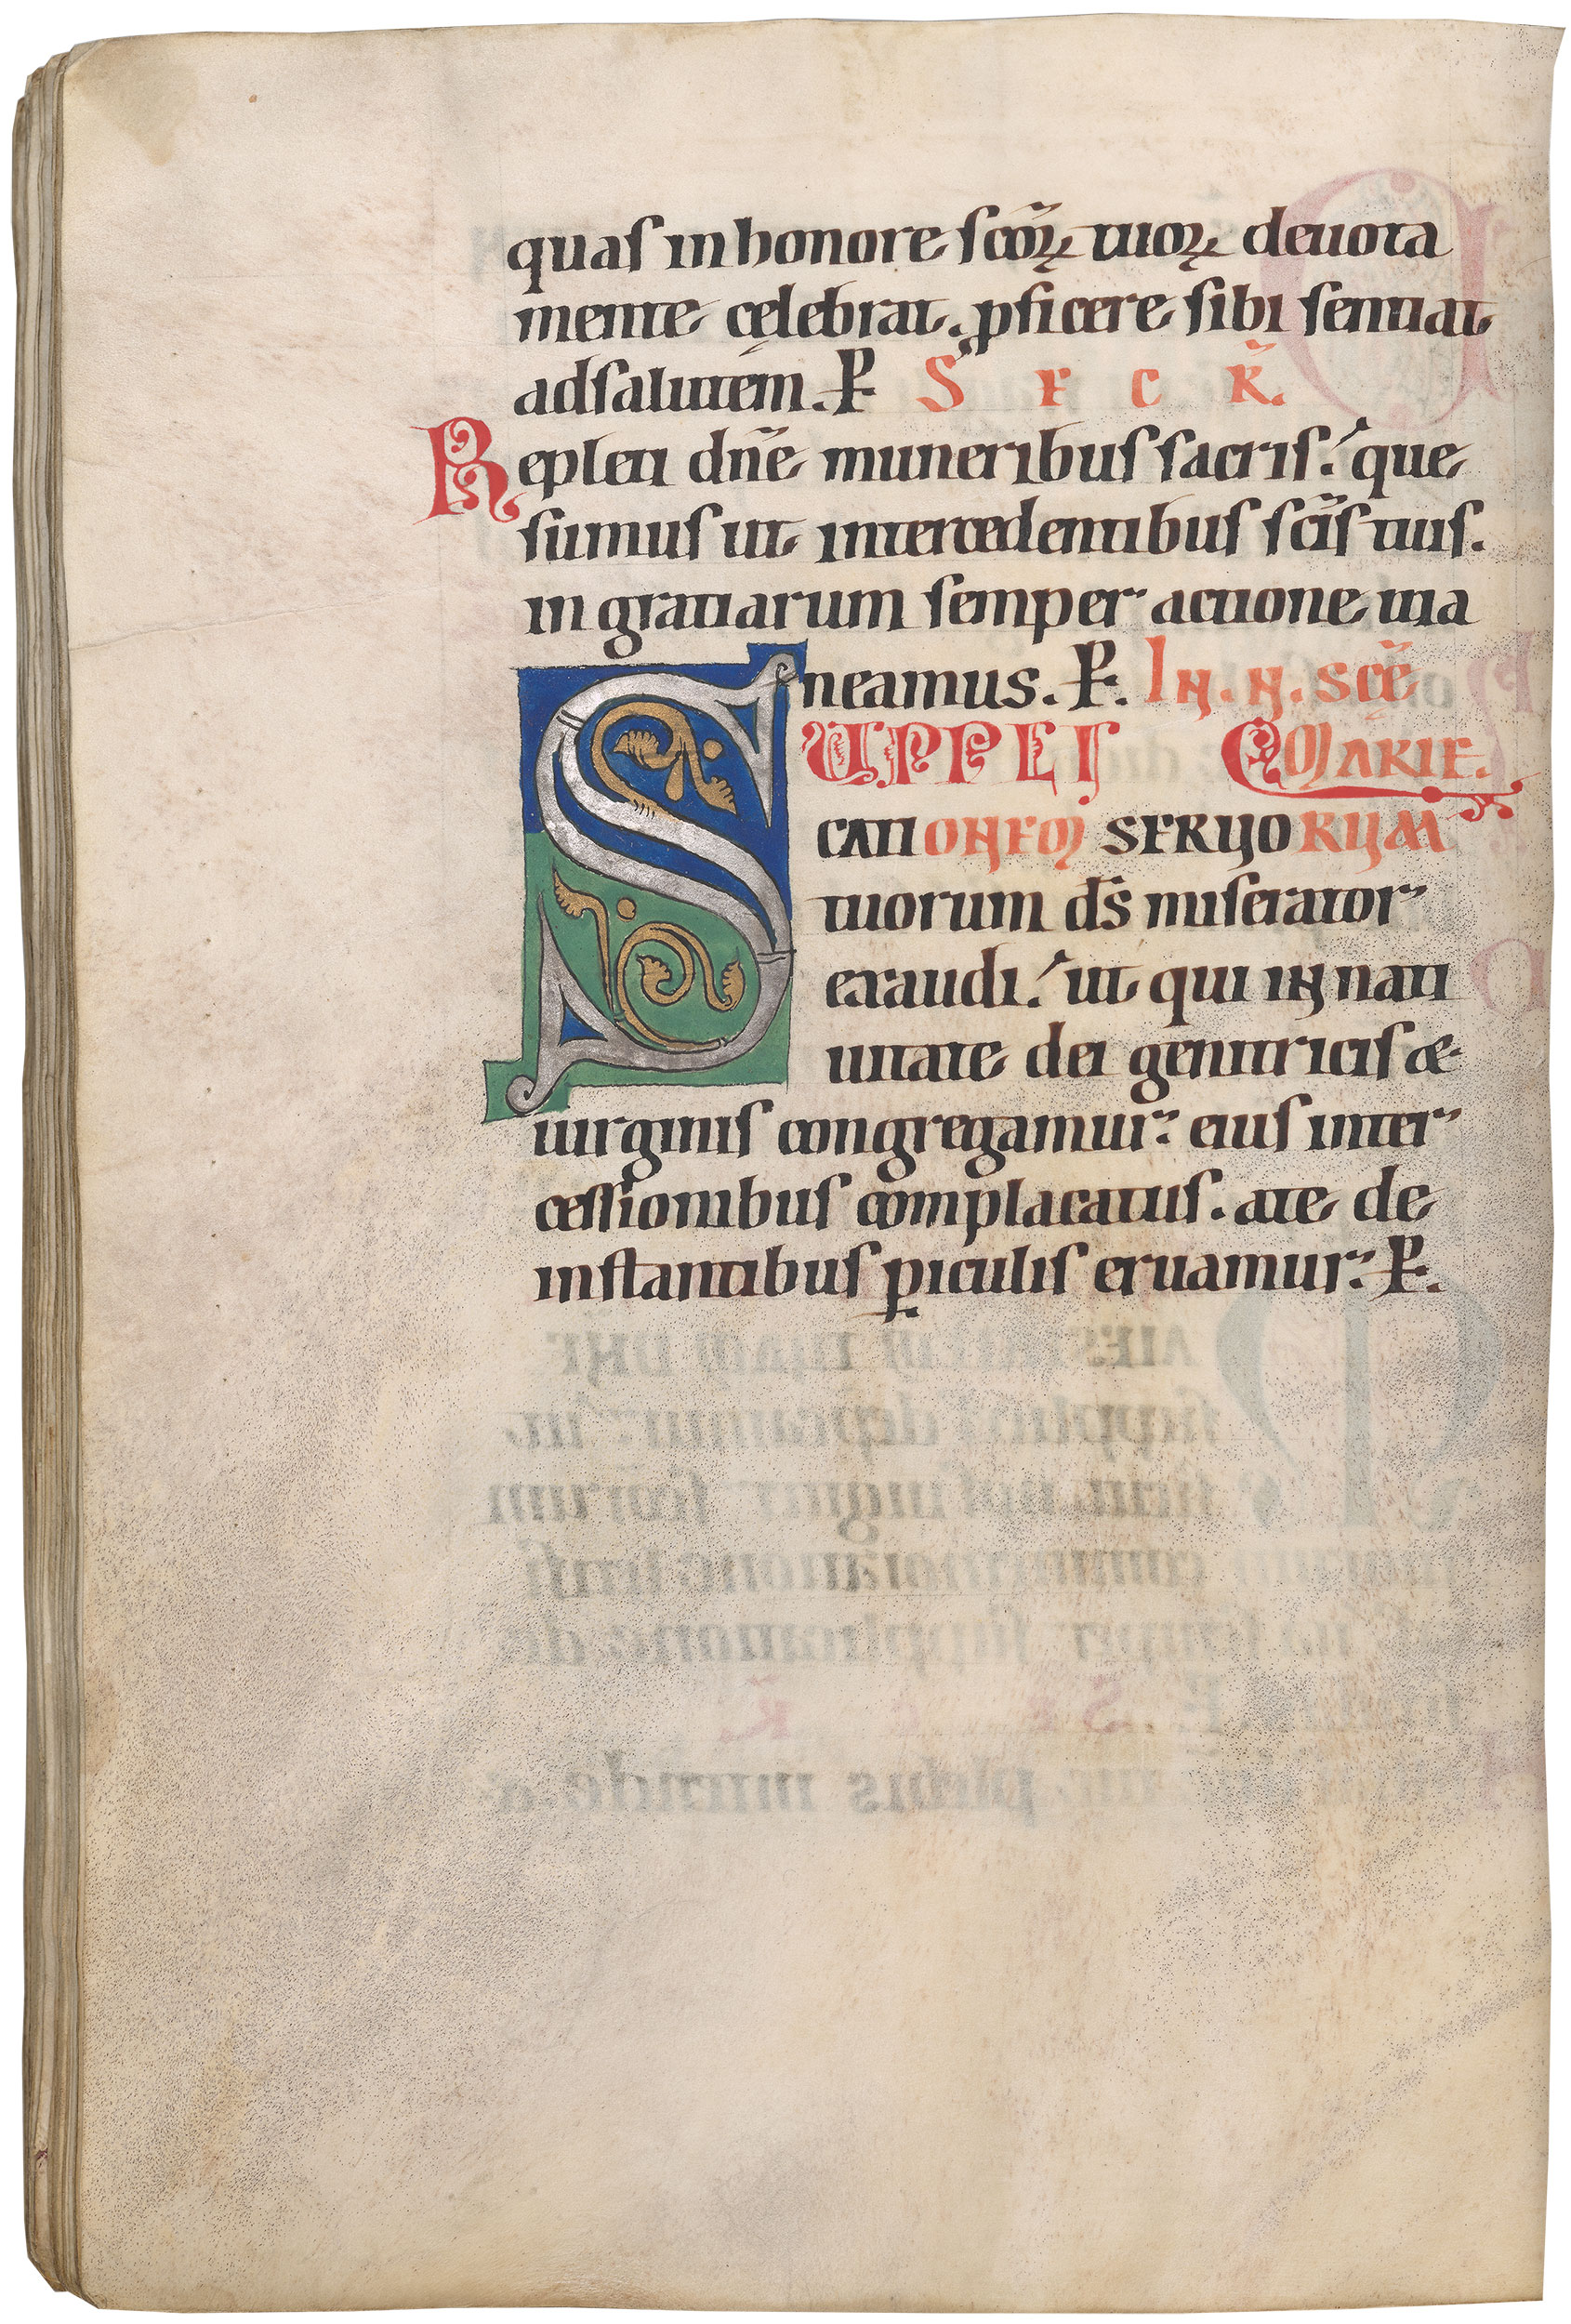 quas in honore scōꝝ tuoꝝ deuota
mente cęlebrat. ꝓficere sibi sentiat
ad salutem. P S E C R̄
Repleti dn̄e muneribus sacris. que
sumus ut intercedentibus scīs tuis.
in gratiarum semper actione ma
neamus. P. IN. N. SCĒ
SUPPLI MARIE.
CATIONEM SERVORUM
tuorum ds̄ miserator
exaudi. ut qui in nati
uitate dei genitricis æ
uirginis congregamur. eius inter
cessionibus complacatus. a te de
instantibus ꝑiculis eruamur. P.